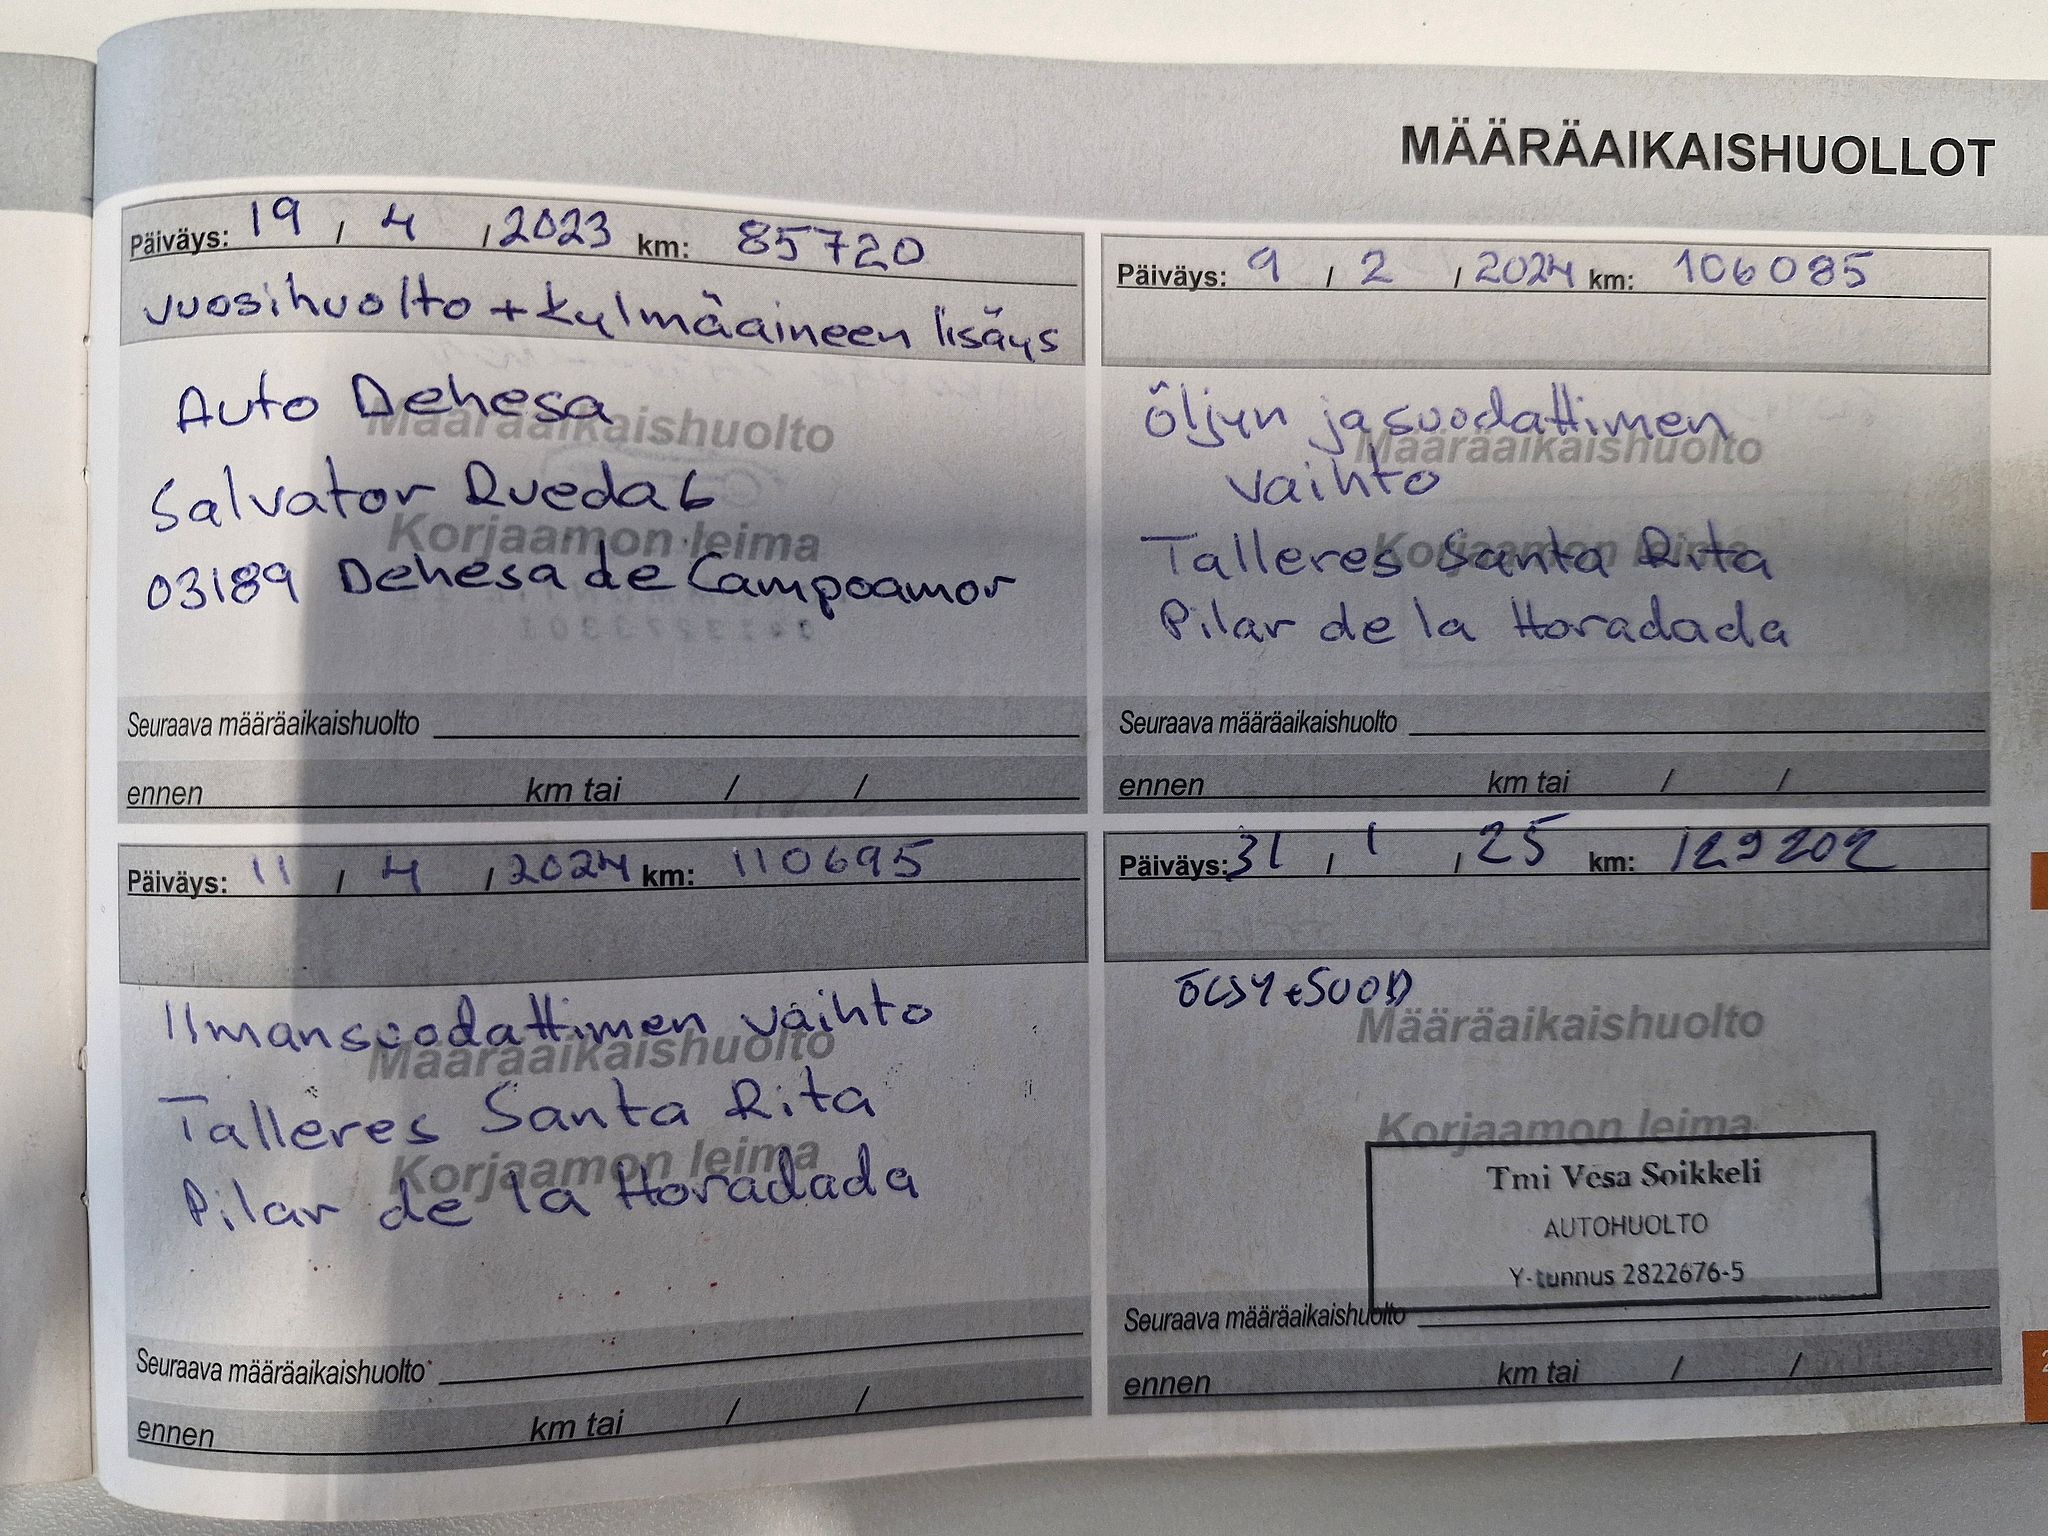 MÄÄRÄAIKAISHUOLLOT
Päiväys: 19 / 4 / 2023 km: 85720
vuosihuolto + kylmäaineen lisäys
Auto Dehesa
Määräaikaishuolto
Salvator Rueda 6
Korjaamon leima
03189 Dehesa de Campoamor
Seuraava määräaikaishuolto
ennen km tai / /
Päiväys: 9 / 2 / 2024 km: 106085
Öljyn ja suodattimen
Määräaikaishuolto
vaihto
Talleres Santa Rita
Korjaamon leima
Pilar de la Horadada
Seuraava määräaikaishuolto
ennen km tai / /
Päiväys: 11 / 4 / 2024 km: 110695
Ilmansuodattimen vaihto
Määräaikaishuolto
Talleres Santa Rita
Korjaamon leima
Pilar de la Horadada
Seuraava määräaikaishuolto
ennen km tai / /
Päiväys: 31 / 1 / 25 km: 129202
ÖLJY + SUOD
Määräaikaishuolto
Korjaamon leima
Tmi Vesa Soikkeli
AUTOHUOLTO
Y-tunnus 2822676-5
Seuraava määräaikaishuolto
ennen km tai / /